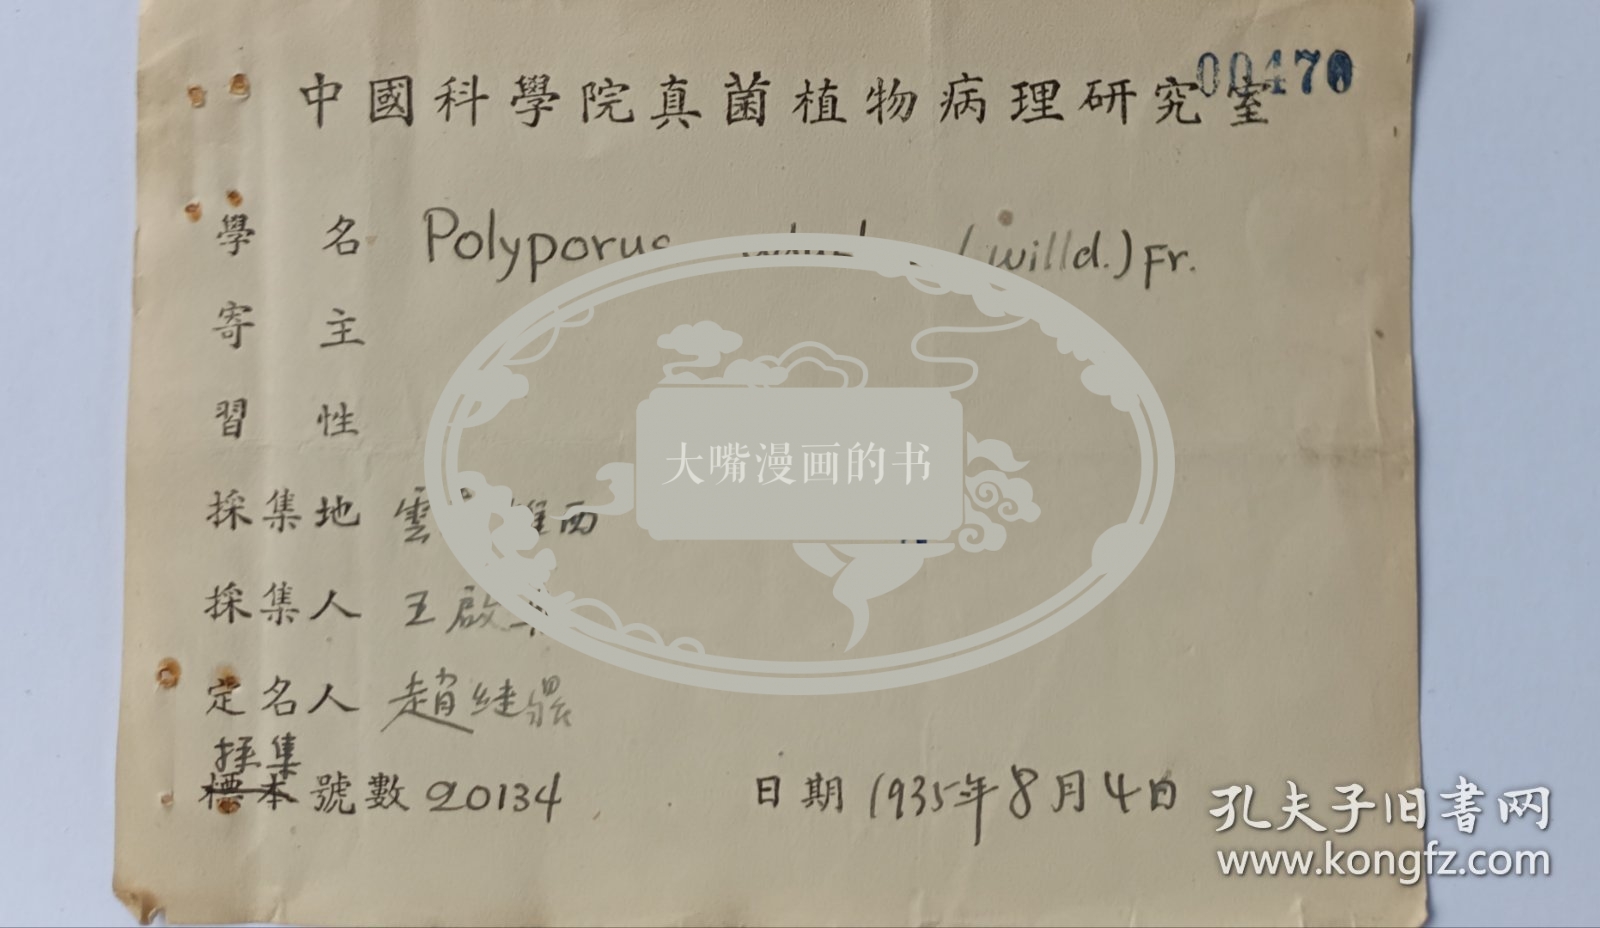 00470
中國科學院真菌植物病理研究室
學名 Polyporus (Willd.) Fr.
寄主
習性
大嘴漫画的书
採集地 雲 維西
採集人 王啟
定名人 趙继鼎
採集
標本號數 20134 日期 1935年8月4日
孔夫子旧书网
www.kongfz.com